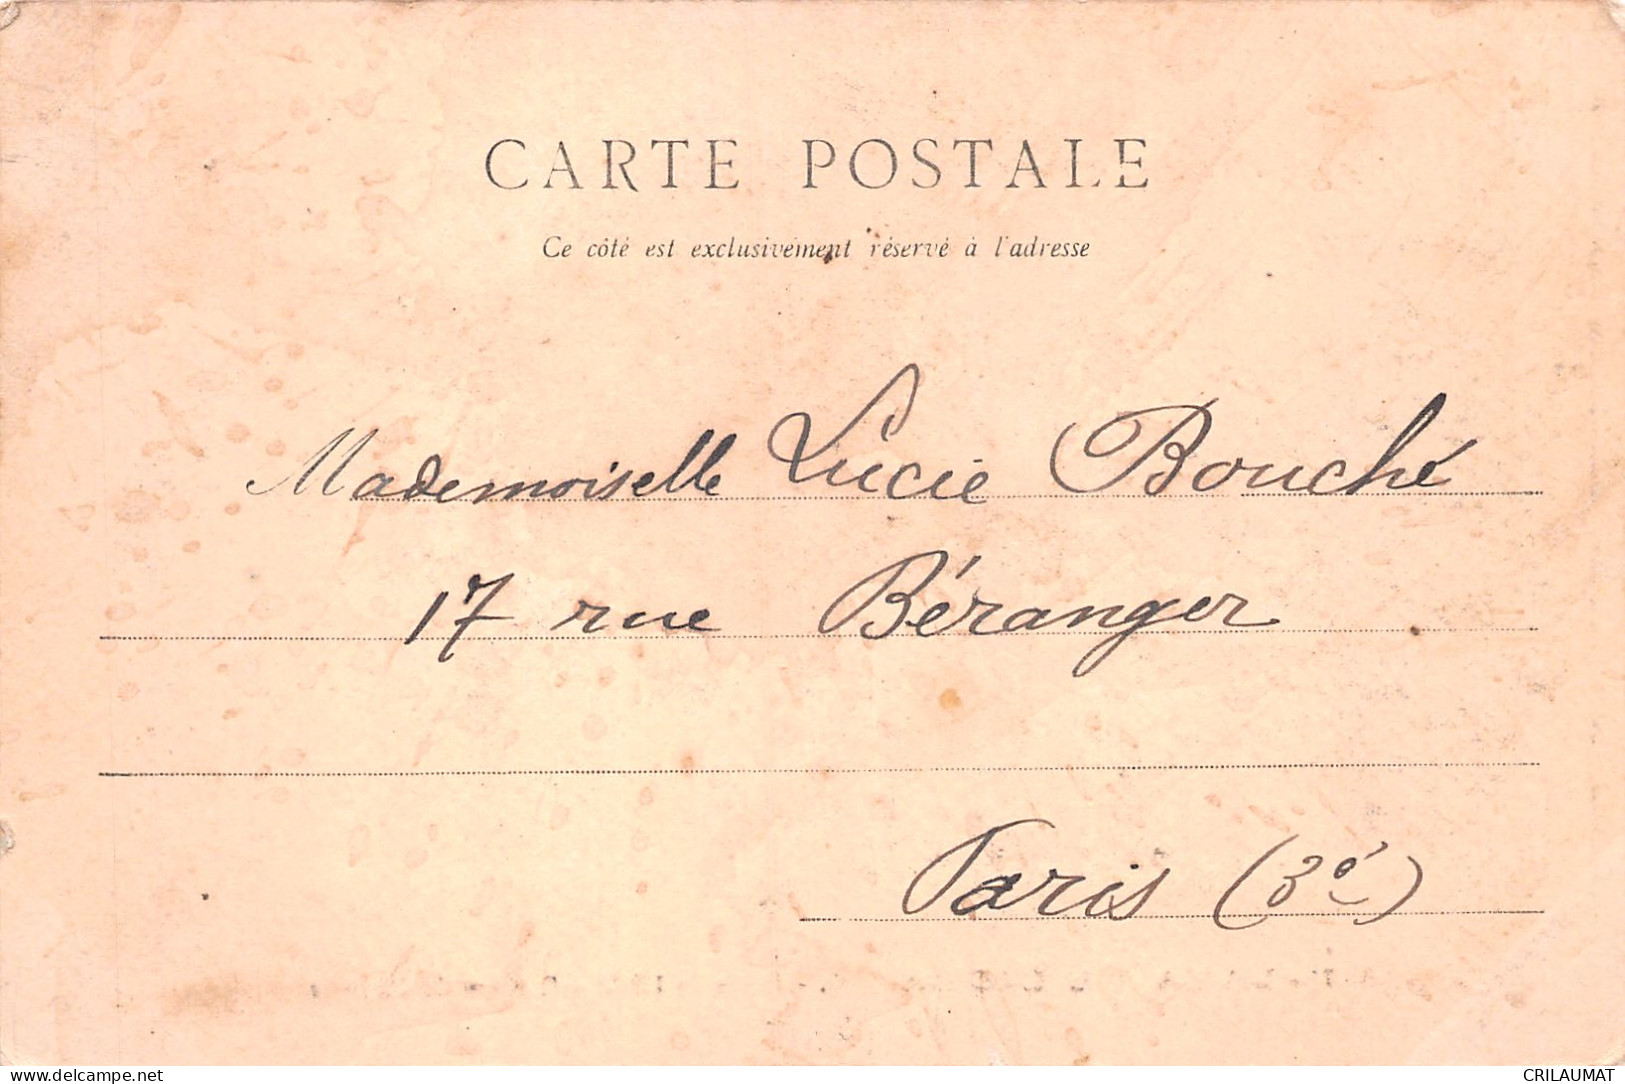 CARTE POSTALE
Ce côté est exclusivement réservé à l'adresse
Mademoiselle Lucie Bouché
17 rue Béranger
Paris (3e)
delcampe.net
CRILAUMAT